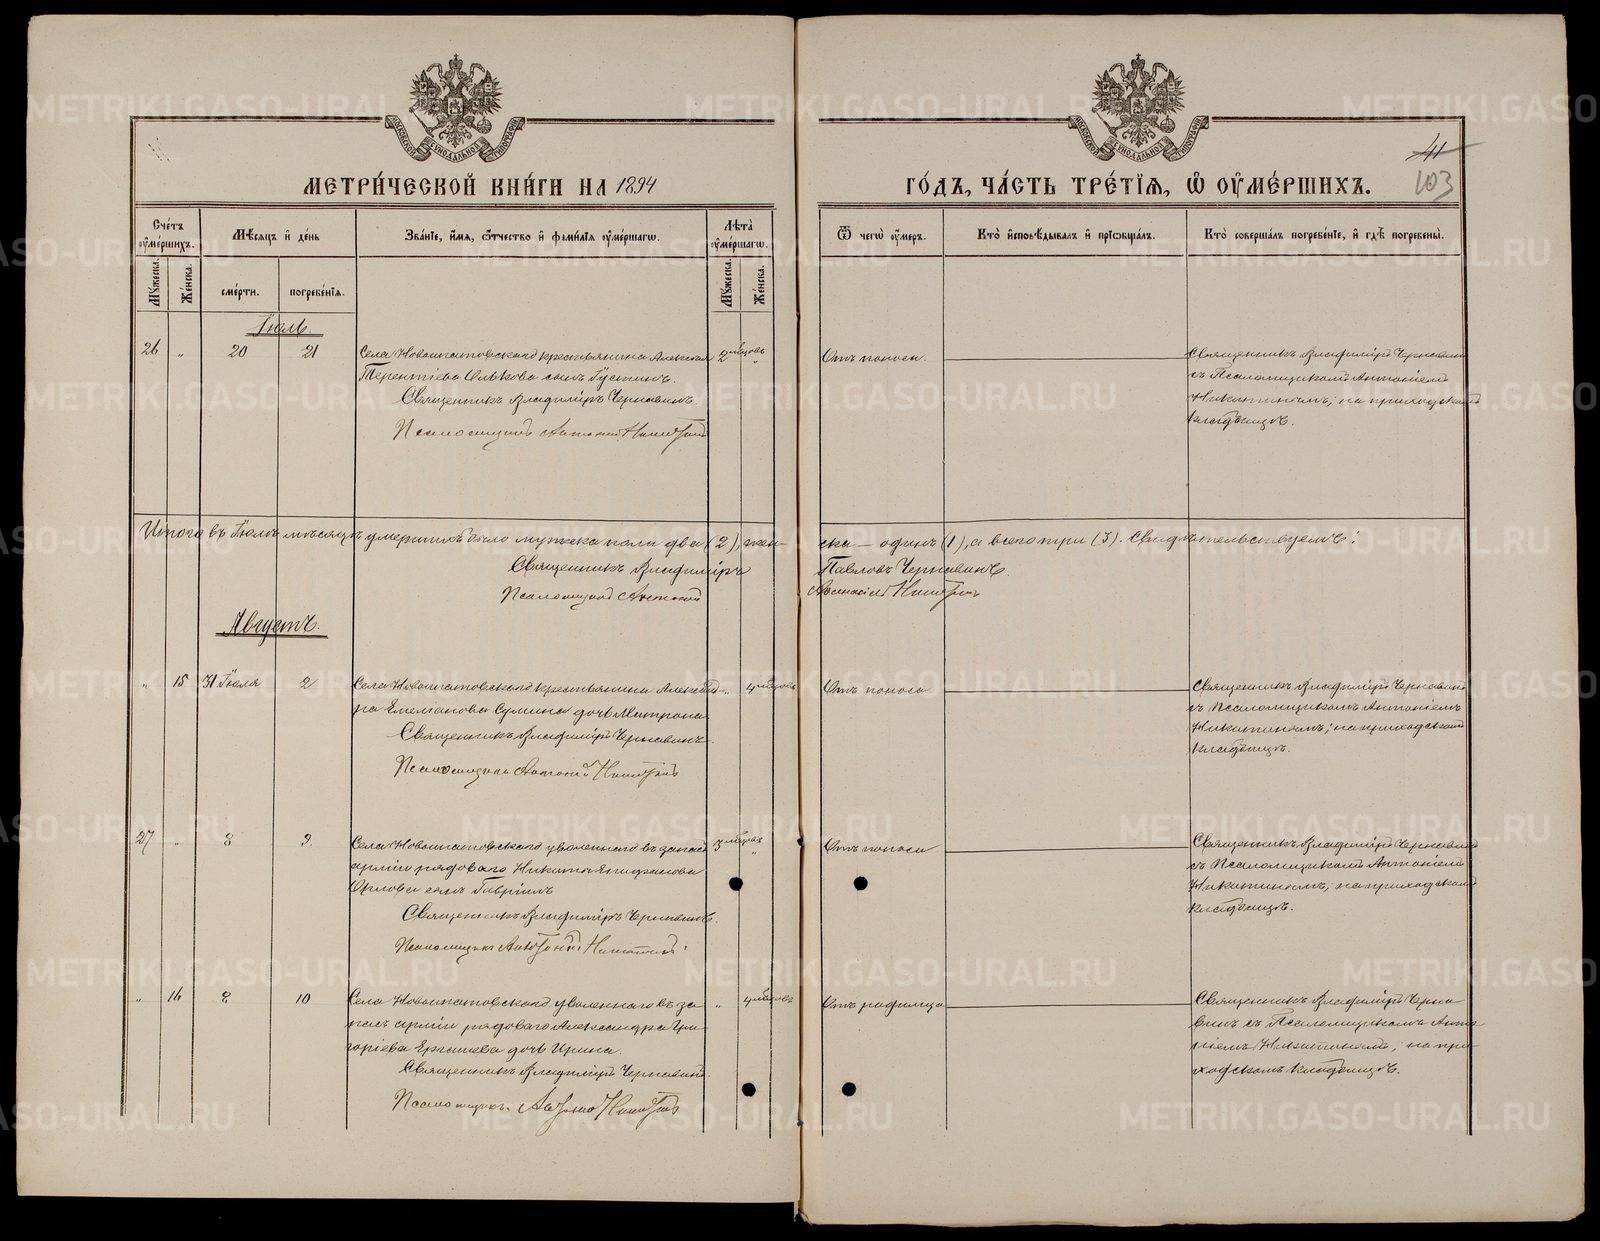 МЕТРИ́ЧЕСКОЙ КНИ́ГИ НА 1894
ГО́ДЪ, ЧА́СТЬ ТРЕ́ТЇѦ, Ѡ҆ ОУ҆МЕ́РШИХЪ.
41
103
Сче́тъ оу҆ме́ршихъ.
Мѣ́сѧцъ и҆ де́нь
Зва́нїе, и҆́мѧ, ѻ҆́тчество и҆ фамѝлїѧ оу҆ме́ршагѡ.
Лѣ́та оу҆ме́ршагѡ.
Ѿ чегѡ̀ оу҆́меръ.
Кто̀ и҆сповѣ́дывалъ и҆ прїѡбща́лъ.
Кто̀ соверша́лъ погребе́нїе, и҆ гдѣ̀ погребены̀.
Мꙋ́жеска.
Же́нска.
сме́рти.
погребе́нїѧ.
Мꙋ́жеска.
Же́нска.
Іюль.
26 " 20 21
Села Новоипатовскаго крестьянина Алексѣя
Терентіева Олькова сынъ Іустинъ.
Священникъ Владиміръ Чернавинъ.
Псаломщикъ Антоній Никитинъ
2 мѣсцовъ "
Отъ поноса.
Священникъ Владиміръ Чернавинъ
съ Псаломщикомъ Антоніемъ
Никитинымъ; на приходскомъ
кладбищѣ.
Итого въ Іюлѣ мѣсяцѣ умершихъ было мужеска пола два (2), жен-
ска — одинъ (1), а всего три (3). Свидѣтельствуемъ:
Священникъ Владиміръ
Павловъ Чернавинъ.
Псаломщикъ Антоній
Никитинъ
Августъ.
" 15 31 Іюля 2
Села Новоипатовскаго крестьянина Александ-
ра Емеліанова Сумина дочь Матрона.
Священникъ Владиміръ Чернавинъ.
Псаломщикъ Антоній Никитинъ
" 4 мѣсцовъ
Отъ поноса
Священникъ Владиміръ Чернавинъ
съ Псаломщикомъ Антоніемъ
Никитинымъ; на приходскомъ
кладбищѣ.
27 " 8 9.
Села Новоипатовскаго уволеннаго въ запасъ
арміи рядоваго Никиты Епифанова
Орлова сынъ Гавріилъ
Священникъ Владиміръ Чернавинъ.
Псаломщикъ Антоній Никитинъ
3 мѣсцовъ "
Отъ поноса
Священникъ Владиміръ Чернавинъ
съ Псаломщикомъ Антоніемъ
Никитинымъ; на приходскомъ
кладбищѣ.
" 16 8 10
Села Новоипатовскаго уволеннаго въ за-
пасъ арміи рядоваго Александра Гри-
горіева дочь Ирина.
Священникъ Владиміръ Чернавинъ.
Псаломщикъ Антоній Никитинъ
" 4 мѣсцовъ
Отъ родимца
Священникъ Владиміръ Черна-
винъ съ Псаломщикомъ Анто-
ніемъ Никитинымъ; на при-
ходскомъ кладбищѣ.
METRIKI.GASO-URAL.RU